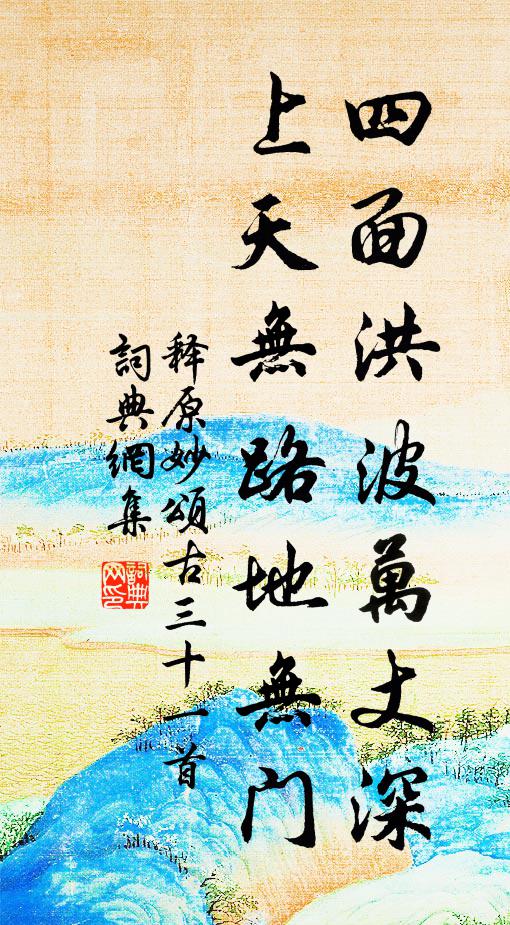 四面洪波萬丈深
上天無路地無门
释原妙頌古三十一首
詞典網集
詞典网印